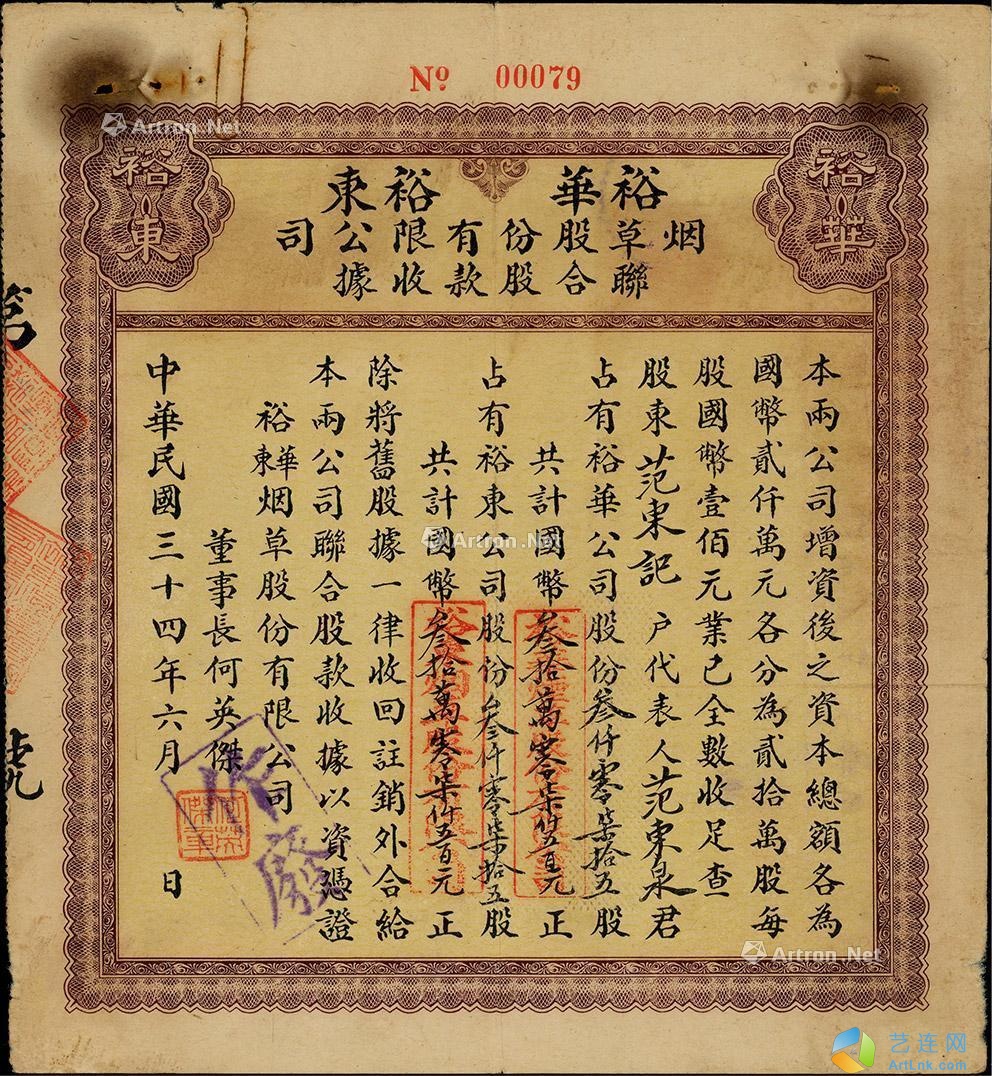 Nº 00079
裕華
裕東
裕華 裕東
烟草股份有限公司
聯合股款收據
本兩公司增資後之資本總額各為
國幣貳仟萬元各分為貳拾萬股每
股國幣壹佰元業已全數收足查
股東范東記戶代表人范東泉君
占有裕華公司股份叁仟零柒拾五股
共計國幣叁拾萬零柒仟五百元正
占有裕東公司股份叁仟零柒拾五股
共計國幣叁拾萬零柒仟五百元正
除將舊股據一律收回註銷外合給
本兩公司聯合股款收據以資憑證
裕華東烟草股份有限公司
董事長何英傑
中華民國三十四年六月 日
作廢
號
Artron.Net
Artron.Net
Artron.Net
艺连网
ArtLnk.com